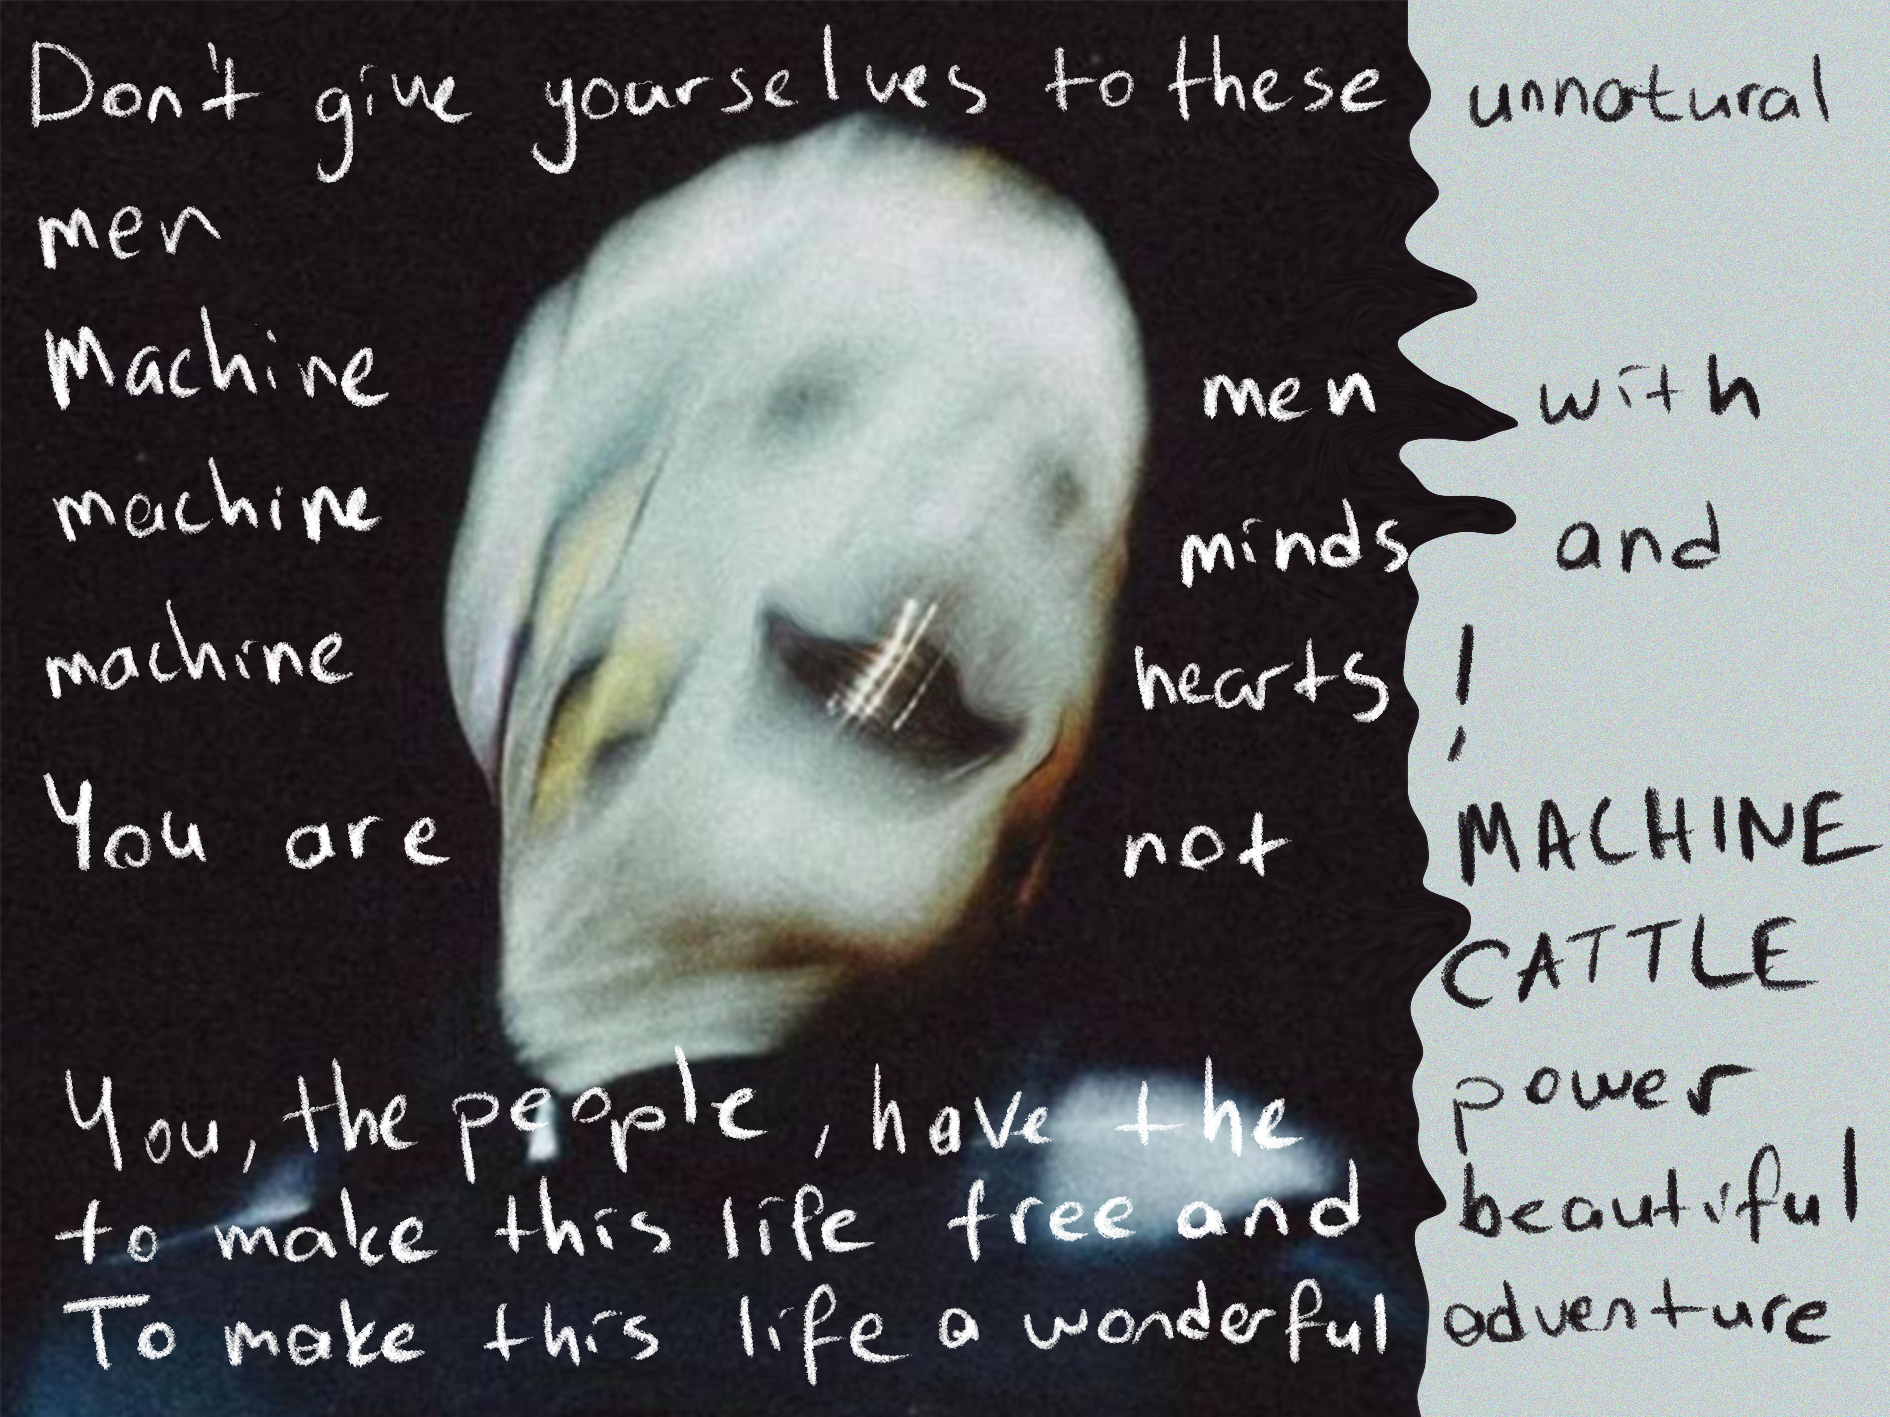 Don't give yourselves to these unnatural
men
Machine men with
machine minds and
machine hearts !
You are not MACHINE
CATTLE
You, the people, have the power
to make this life free and beautiful
To make this life a wonderful adventure